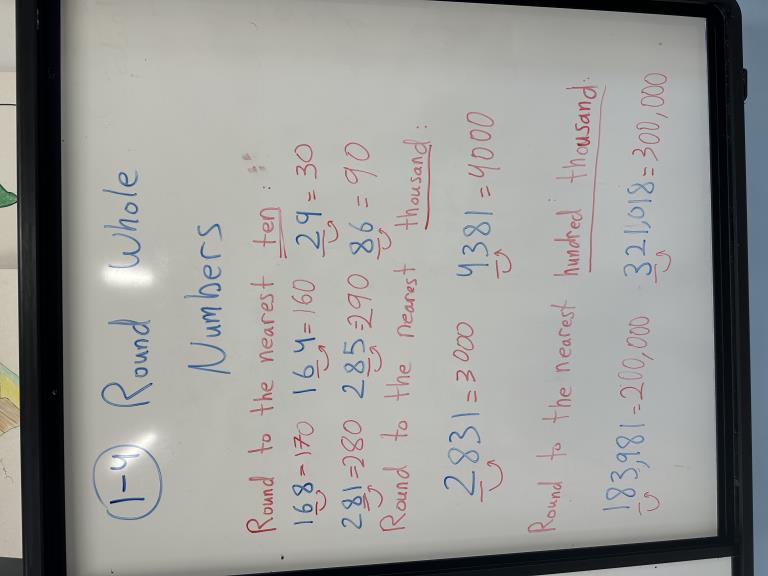 1-4 Round Whole
Numbers
Round to the nearest ten:
168=170 164=160 29=30
281=280 285=290 86=90
Round to the nearest thousand:
2831=3000 4381=4000
Round to the nearest hundred thousand:
183,981=200,000 321,018=300,000